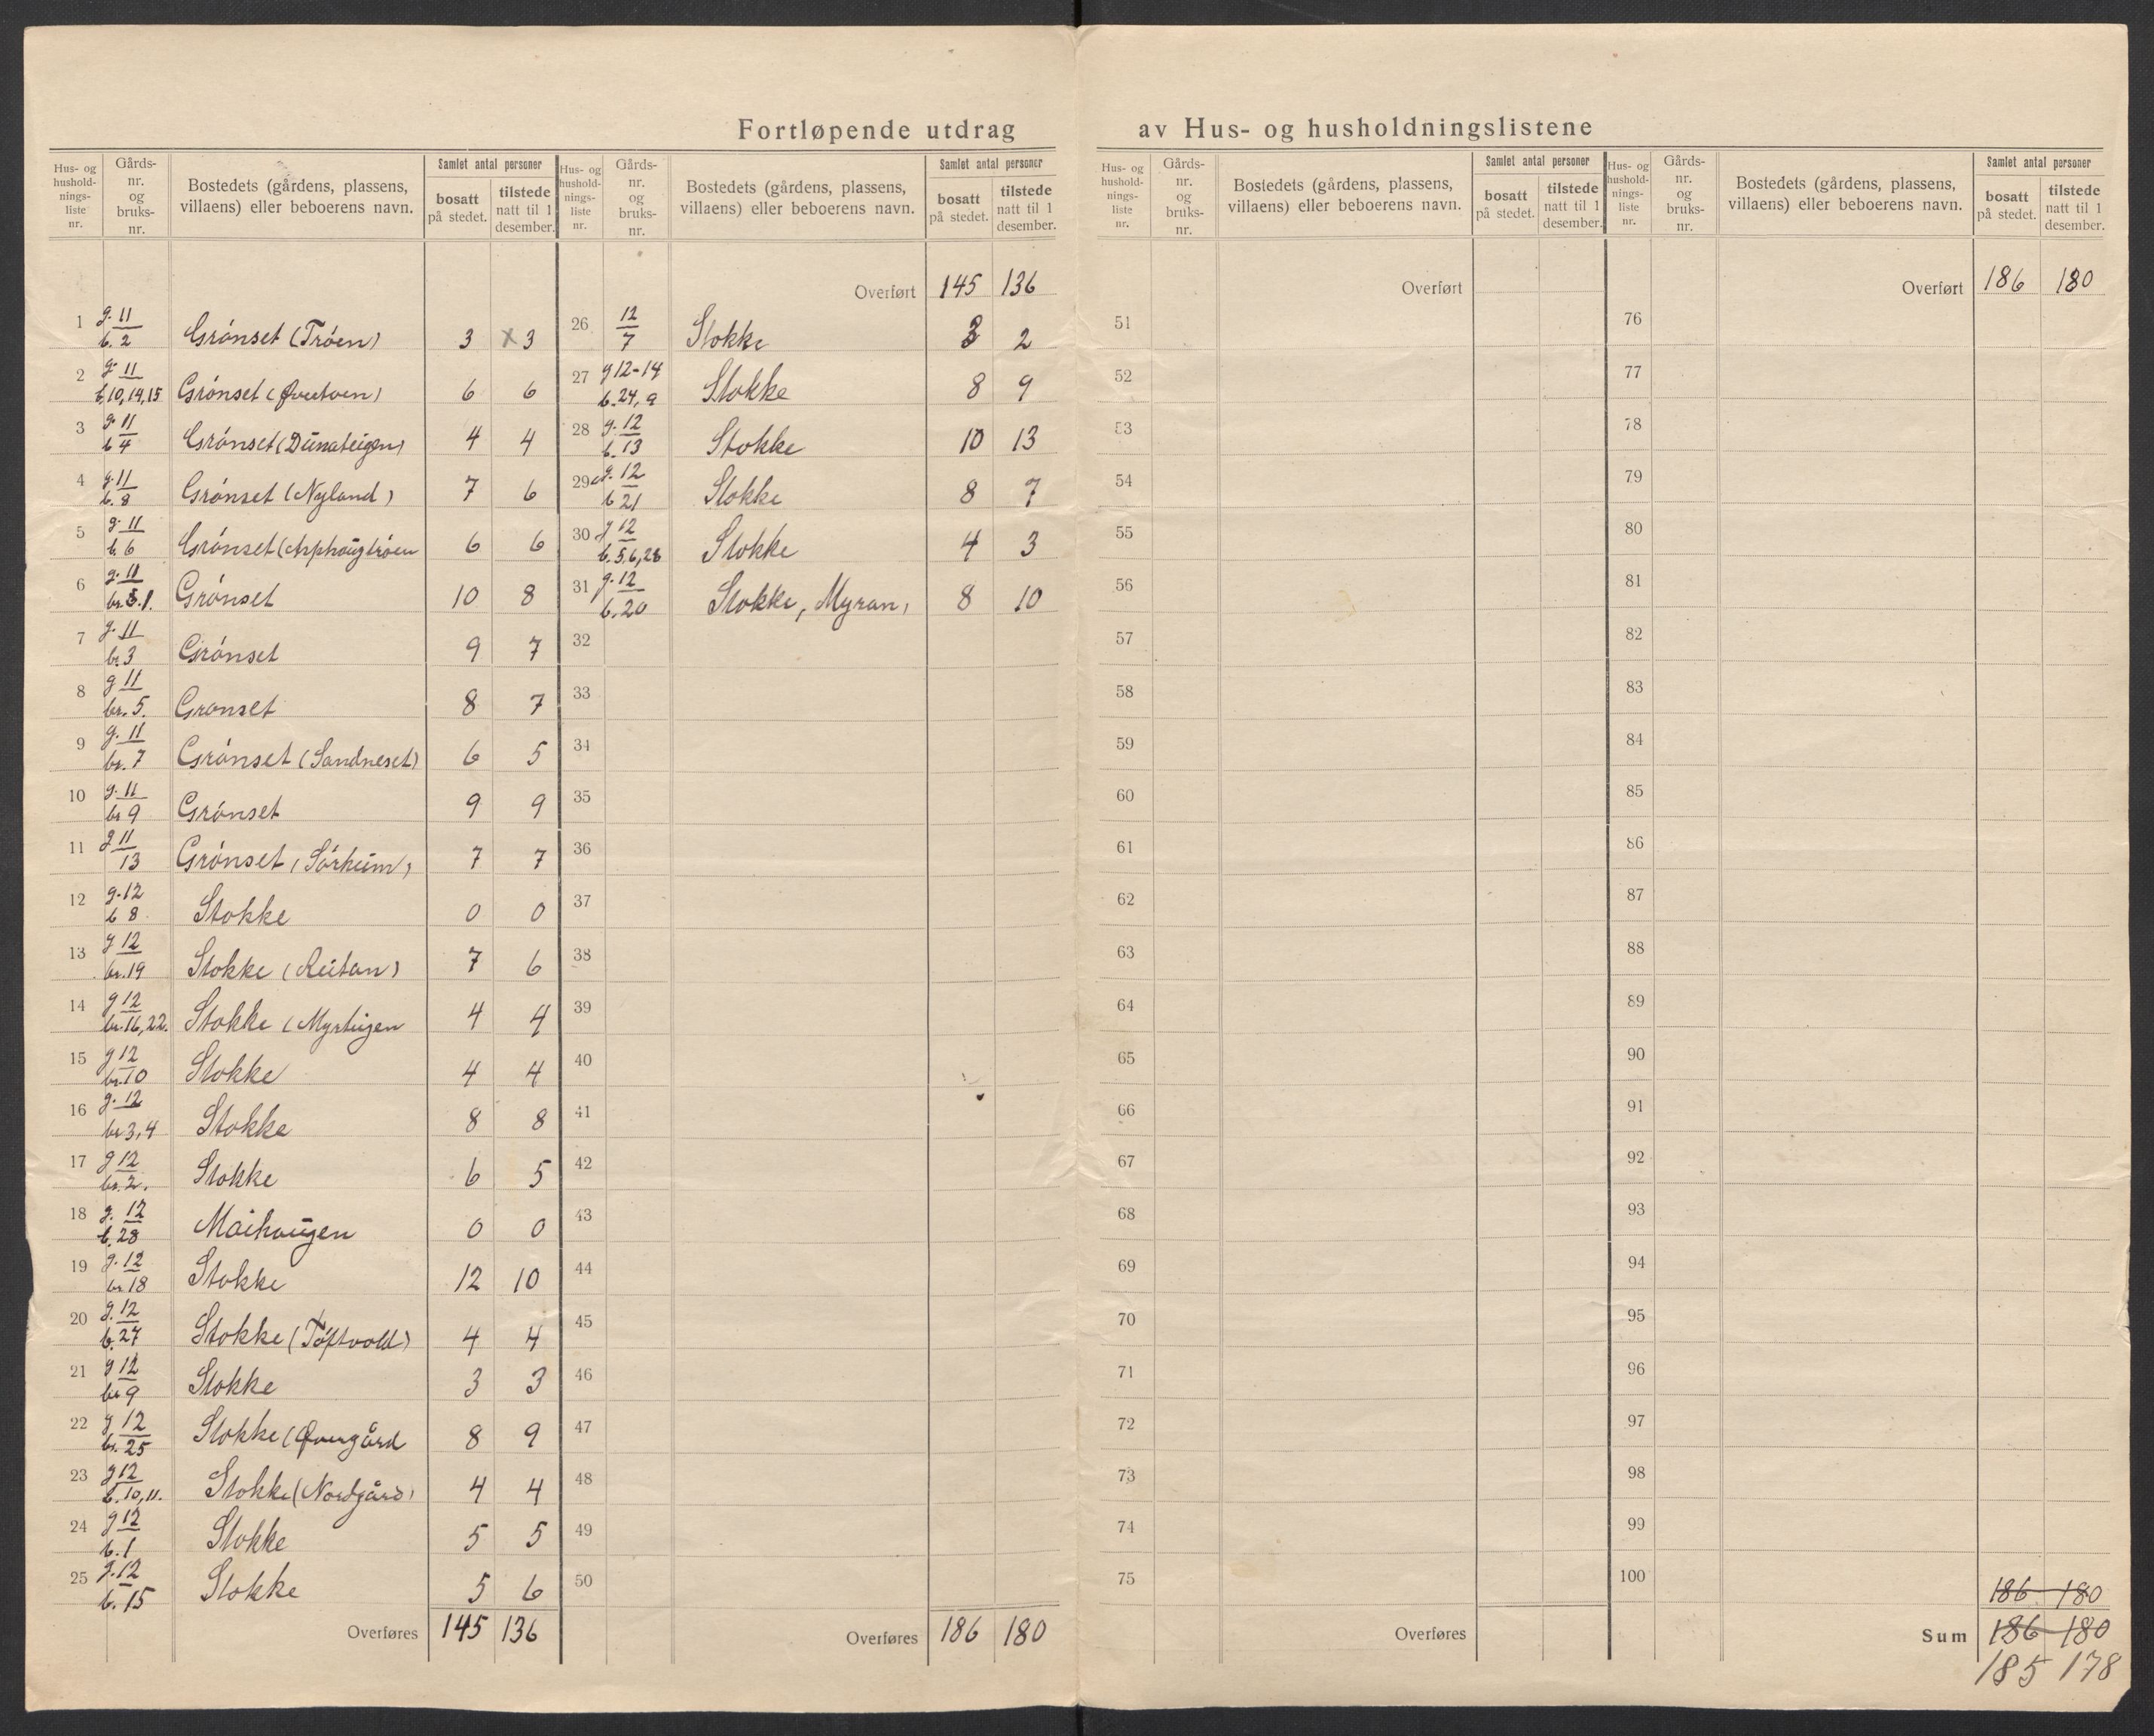 Fortløpende utdrag av Hus- og husholdningslistene
Hus- og husholdnings-liste nr. Gårds-nr. og bruks-nr. Bostedets (gårdens, plassens, villaens) eller beboerens navn. Samlet antal personer bosatt på stedet. tilstede natt til 1 desember.
Hus- og husholdnings-liste nr. Gårds-nr. og bruks-nr. Bostedets (gårdens, plassens, villaens) eller beboerens navn. Samlet antal personer bosatt på stedet. tilstede natt til 1 desember.
Hus- og husholdnings-liste nr. Gårds-nr. og bruks-nr. Bostedets (gårdens, plassens, villaens) eller beboerens navn. Samlet antal personer bosatt på stedet. tilstede natt til 1 desember.
Hus- og husholdnings-liste nr. Gårds-nr. og bruks-nr. Bostedets (gårdens, plassens, villaens) eller beboerens navn. Samlet antal personer bosatt på stedet. tilstede natt til 1 desember.
1 g. 11 b. 2 Grónset (Tróen) 3 x 3
2 g. 11 b. 10, 14, 15 Grónset 6 6
3 g. 11 b 4 Grónset (Dúnateigen) 4 4
4 g. 11 b. 8 Grónset (Nyland) 7 6
5 g. 11 b. 6 Grónset (Asphougtróen 6 6
6 g. 11 br. 1. Grónset 10 8
7 g. 11 br 3 Grónset 9 7
8 g 11 br. 5. Gronset 8 7
9 g. 11 br. 7 Grónset (Sandneset) 6 5
10 g. 11 br 9 Grónset 9 9
11 g 11 13 Grónset (Sórheim) 7 7
12 g. 12 b 8 Stokke 0 0
13 g 12 br. 19 Stokke (Reitan) 7 6
14 g 12 br. 16, 22. Stokke (Myrteigen 4 4
15 g 12 br. 10 Stokke 4 4
16 g. 12 br 3, 4 Stokke 8 8
17 g 12 br. 2. Stokke 6 5
18 g. 12 b. 28 Maihougen 0 0
19 g. 12 br 18 Stokke 12 10
20 g. 12 b. 27 Stokke (Tóftvold) 4 4
21 g 12 br 9 Stokke 3 3
22 g 12 br. 25 Stokke (Øvergård 8 9
23 g 12 b. 10, 11. Stokke (Nordgård) 4 4
24 g 12 b. 1 Stokke 5 5
25 g. 12 b. 15 Stokke 5 6
Overføres 145 136
Overført 145 136
26 12 7 Stokke 3 2
27 g 12-14 b. 24, 9 Stokke 8 9
28 g. 12 b. 13 Stokke 10 13
29 g. 12 b 21 Stokke 8 7
30 g 12 b. 5, 6, 28 Stokke 4 3
31 g. 12 b. 20 Stokke, Myran, 8 10
32
33
34
35
36
37
38
39
40
41
42
43
44
45
46
47
48
49
50
Overføres 186 180
Overført
51
52
53
54
55
56
57
58
59
60
61
62
63
64
65
66
67
68
69
70
71
72
73
74
75
Overføres
Overført 186 180
76
77
78
79
80
81
82
83
84
85
86
87
88
89
90
91
92
93
94
95
96
97
98
99
100
186 180
Sum 186 180
185 178